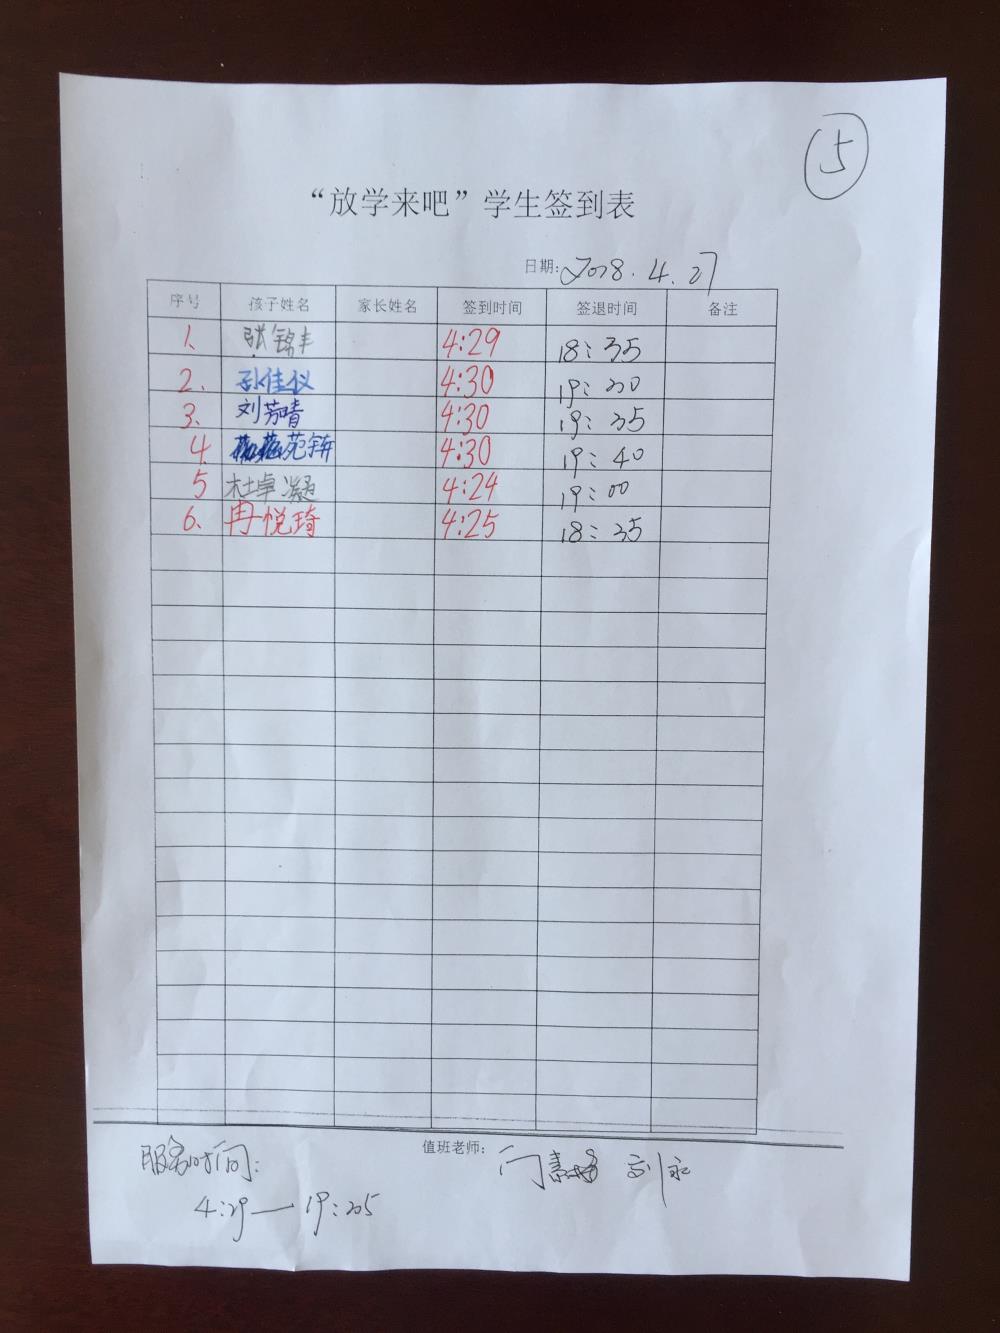 5
“放学来吧”学生签到表
日期:2018.4.27
序号 孩子姓名 家长姓名 签到时间 签退时间 备注
1、 张铭丰 4:29 18:35
2、 孙佳仪 4:30
3、 刘芳晴 4:30 19:35
4 苑 4:30 19:40
5 杜卓凝 4:24 19:00
6、 冉悦琦 4:25 18:35
值班老师:
服务时间: 闫 刘永
4:29—